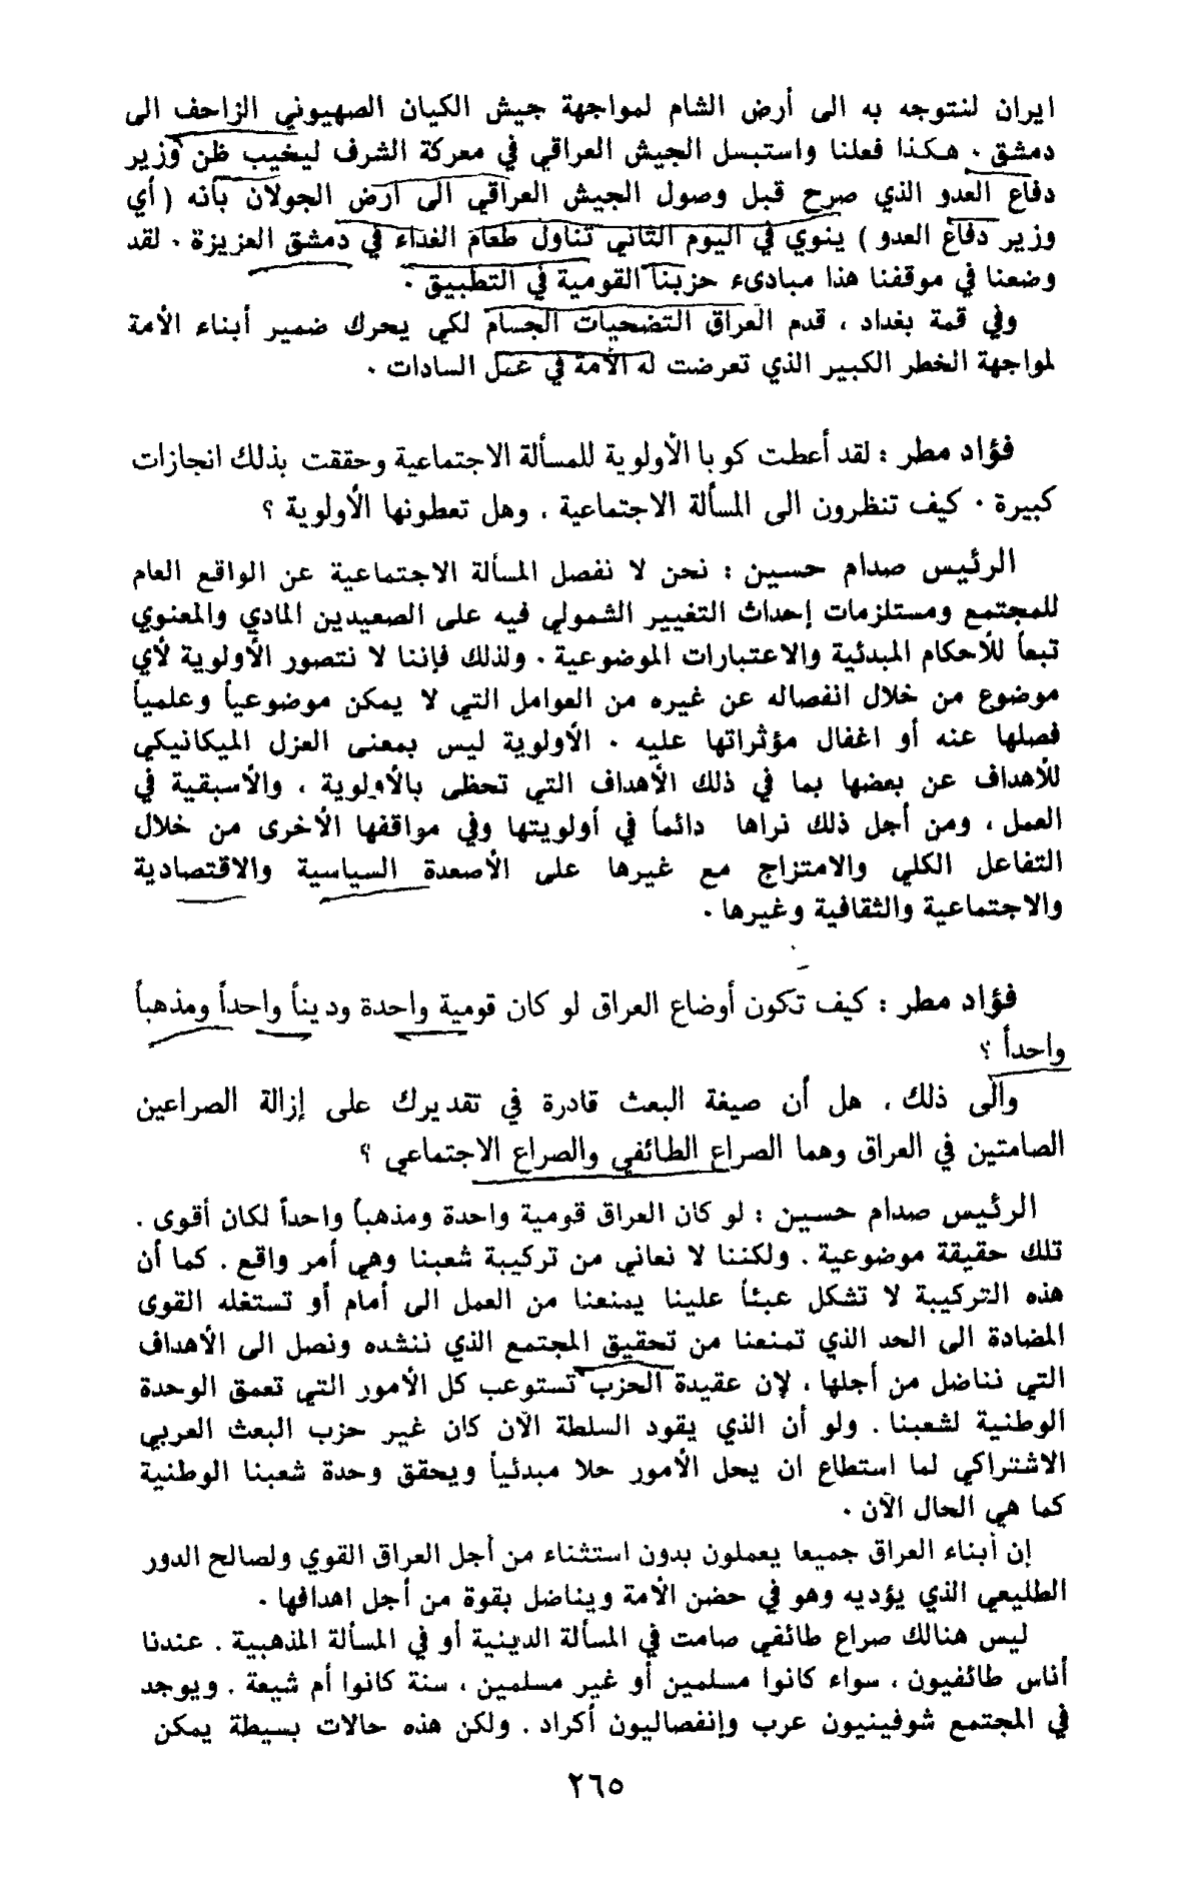 ايران لنتوجه به الى أرض الشام لمواجهة جيش الكيان الصهيوني الزاحف الى
دمشق . هكذا فعلنا واستبسل الجيش العراقي في معركة الشرف ليخيب ظن وزير
دفاع العدو الذي صرح قبل وصول الجيش العراقي الى أرض الجولان بأنه ( أي
وزير دفاع العدو ) ينوي في اليوم الثاني تناول طعام الغداء في دمشق العزيزة . لقد
وضعنا في موقفنا هذا مبادىء حزبنا القومية في التطبيق .
وفي قمة بغداد ، قدم العراق التضحيات الجسام لكي يحرك ضمير أبناء الأمة
لمواجهة الخطر الكبير الذي تعرضت له الأمة في عمل السادات .
فؤاد مطر : لقد أعطت كوبا الأولوية للمسألة الاجتماعية وحققت بذلك انجازات
كبيرة . كيف تنظرون الى المسألة الاجتماعية ، وهل تعطونها الأولوية ؟
الرئيس صدام حسين : نحن لا نفصل المسألة الاجتماعية عن الواقع العام
للمجتمع ومستلزمات إحداث التغيير الشمولي فيه على الصعيدين المادي والمعنوي
تبعاً للأحكام المبدئية والاعتبارات الموضوعية . ولذلك فإننا لا نتصور الأولوية لأي
موضوع من خلال انفصاله عن غيره من العوامل التي لا يمكن موضوعياً وعلمياً
فصلها عنه أو اغفال مؤثراتها عليه . الأولوية ليس بمعنى العزل الميكانيكي
للأهداف عن بعضها بما في ذلك الأهداف التي تحظى بالأولوية ، والأسبقية في
العمل ، ومن أجل ذلك نراها دائماً في أولويتها وفي مواقفها الأخرى من خلال
التفاعل الكلي والامتزاج مع غيرها على الأصعدة السياسية والاقتصادية
والاجتماعية والثقافية وغيرها .
فؤاد مطر : كيف تكون أوضاع العراق لو كان قومية واحدة وديناً واحداً ومذهباً
واحداً ؟
والى ذلك ، هل أن صيغة البعث قادرة في تقديرك على إزالة الصراعين
الصامتين في العراق وهما الصراع الطائفي والصراع الاجتماعي ؟
الرئيس صدام حسين : لو كان العراق قومية واحدة ومذهباً واحداً لكان أقوى .
تلك حقيقة موضوعية . ولكننا لا نعاني من تركيبة شعبنا وهي أمر واقع . كما أن
هذه التركيبة لا تشكل عبئاً علينا يمنعنا من العمل الى أمام أو تستغله القوى
المضادة الى الحد الذي تمنعنا من تحقيق المجتمع الذي ننشده ونصل الى الأهداف
التي نناضل من أجلها ، لإن عقيدة الحزب تستوعب كل الأمور التي تعمق الوحدة
الوطنية لشعبنا . ولو أن الذي يقود السلطة الآن كان غير حزب البعث العربي
الاشتراكي لما استطاع ان يحل الأمور حلا مبدئياً ويحقق وحدة شعبنا الوطنية
كما هي الحال الآن .
إن أبناء العراق جميعا يعملون بدون استثناء من أجل العراق القوي ولصالح الدور
الطليعي الذي يؤديه وهو في حضن الأمة ويناضل بقوة من أجل اهدافها .
ليس هنالك صراع طائفي صامت في المسألة الدينية أو في المسألة المذهبية . عندنا
أناس طائفيون ، سواء كانوا مسلمين أو غير مسلمين ، سنة كانوا أم شيعة . ويوجد
في المجتمع شوفينيون عرب وإنفصاليون أكراد . ولكن هذه حالات بسيطة يمكن
٢٦٥